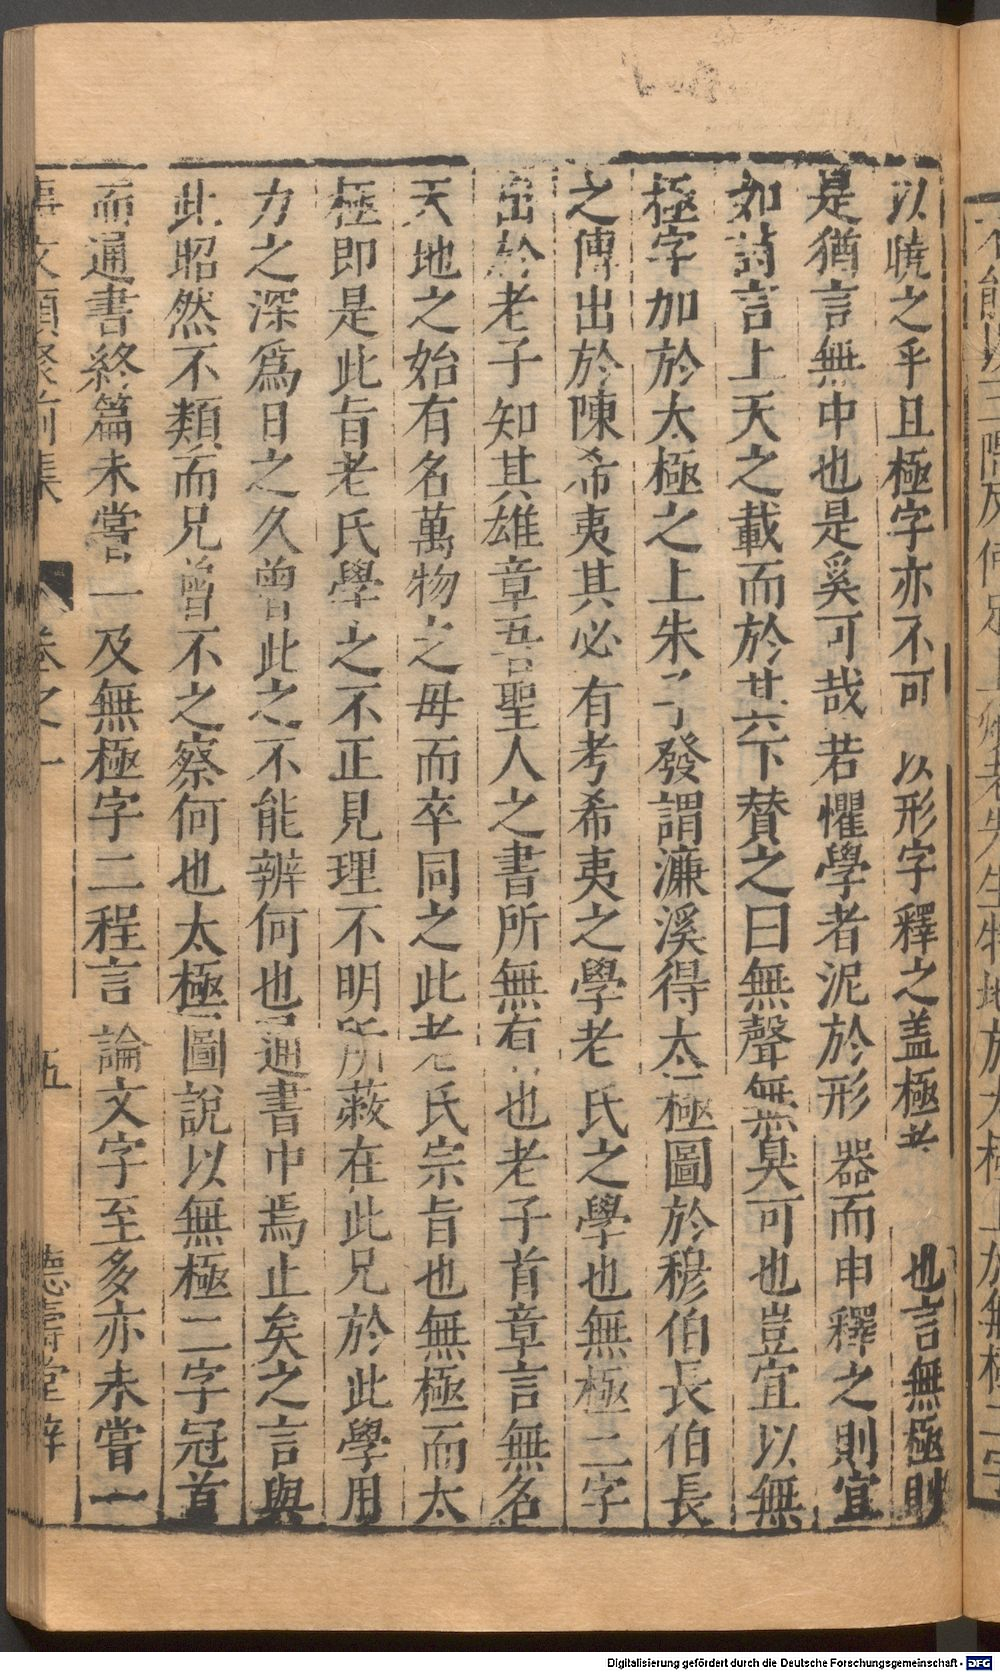 以曉之乎且極字亦不可以形字釋之盖極者也言無極則
是猶言無中也是奚可哉若懼學者泥於形器而申釋之則宜
如詩言上天之載而於其下賛之曰無聲無臭可也豈宜以無
極字加於太極之上朱子發謂濂溪得太極圖於穆伯長伯長
之傳出於陳希夷其必有考希夷之學老氏之學也無極二字
出於老子知其雄章吾聖人之書所無有也老子首章言無名
天地之始有名萬物之母而卒同之此老氏宗旨也無極而太
極即是此旨老氏學之不正見理不明所蔽在此兄於此學用
力之深爲日之久曾此之不能辨何也通書中焉止矣之言與
此昭然不類而兄曾不之察何也太極圖說以無極二字冠首
而通書終篇未嘗一及無極字二程言論文字至多亦未嘗一
事文類聚前集 卷之一 五 德壽堂梓
Digitalisierung gefördert durch die Deutsche Forschungsgemeinschaft - DFG